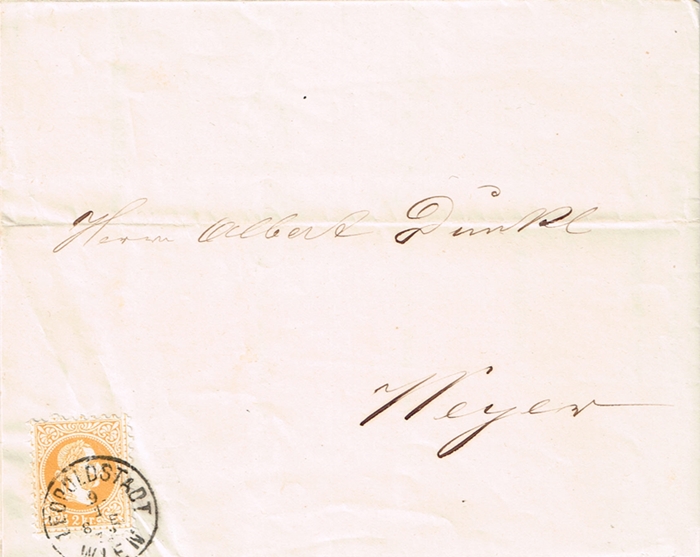 Herrn Albert Dunkl
Weyer
2 kr
LEOPOLDSTADT
WIEN